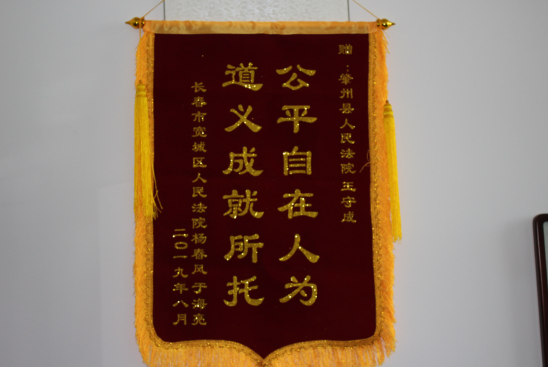 赠：肇州县人民法院 王守成
公平自在人为
道义成就所托
长春市宽城区人民法院杨春风于海亮
二〇一九年八月